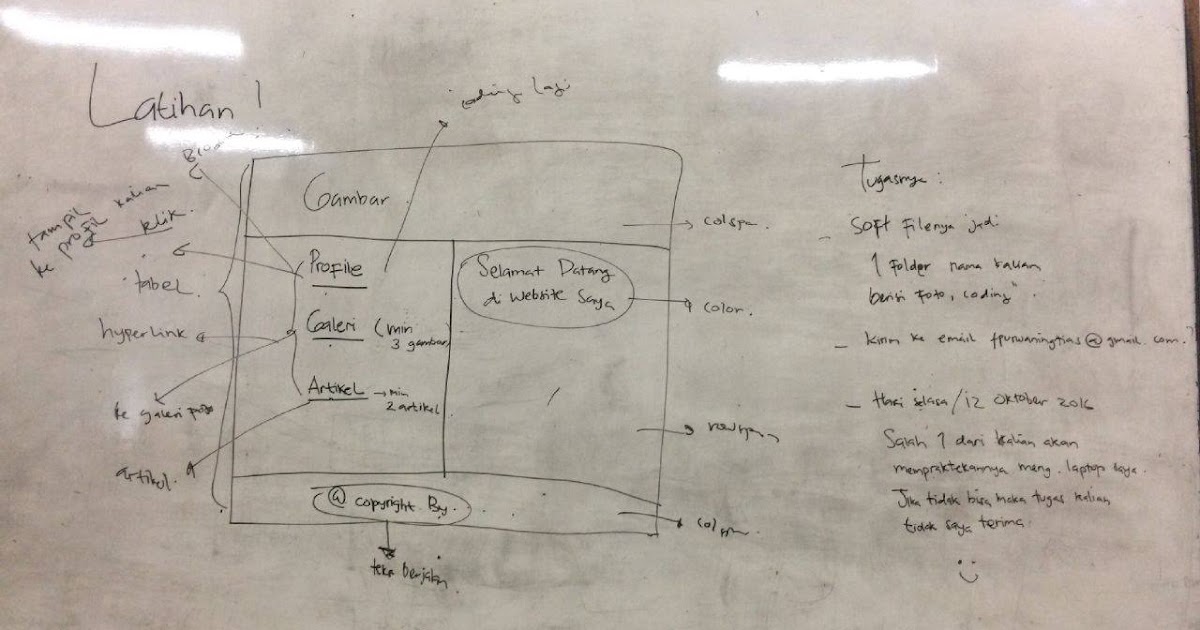 Latihan 1
coding lagi
tampil
ke profil kalian
klik.
tabel.
hyperlink
ke galeri
artikel.
Gambar
colspan
Profile
Galeri (min
3 gambar)
Artikel → min
2 artikel
Selamat Datang
di Website Saya
color.
rowspan
@ copyright By.
colspan
teks berjalan
Tugasnya :
- Soft filenya jadi
1 folder nama kalian
berisi foto, coding".
- Kirim ke email fpurwaningtias@gmail.com.
- Hari selasa/12 Oktober 2016
Salah 1 dari kalian akan
mempraktekannya meng. laptop saya.
Jika tidak bisa maka tugas kalian
tidak saya terima.